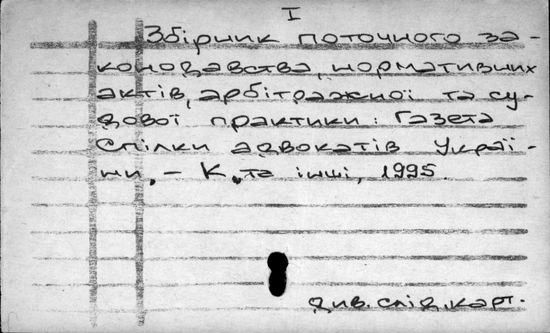 I
Збірник поточного за-
конодавства, нормативних
актів, арбітражної та су-
дової практики: Газета
Спілки адвокатів Украї-
ни, – К. та інші, 1995.
див. слід. карт.